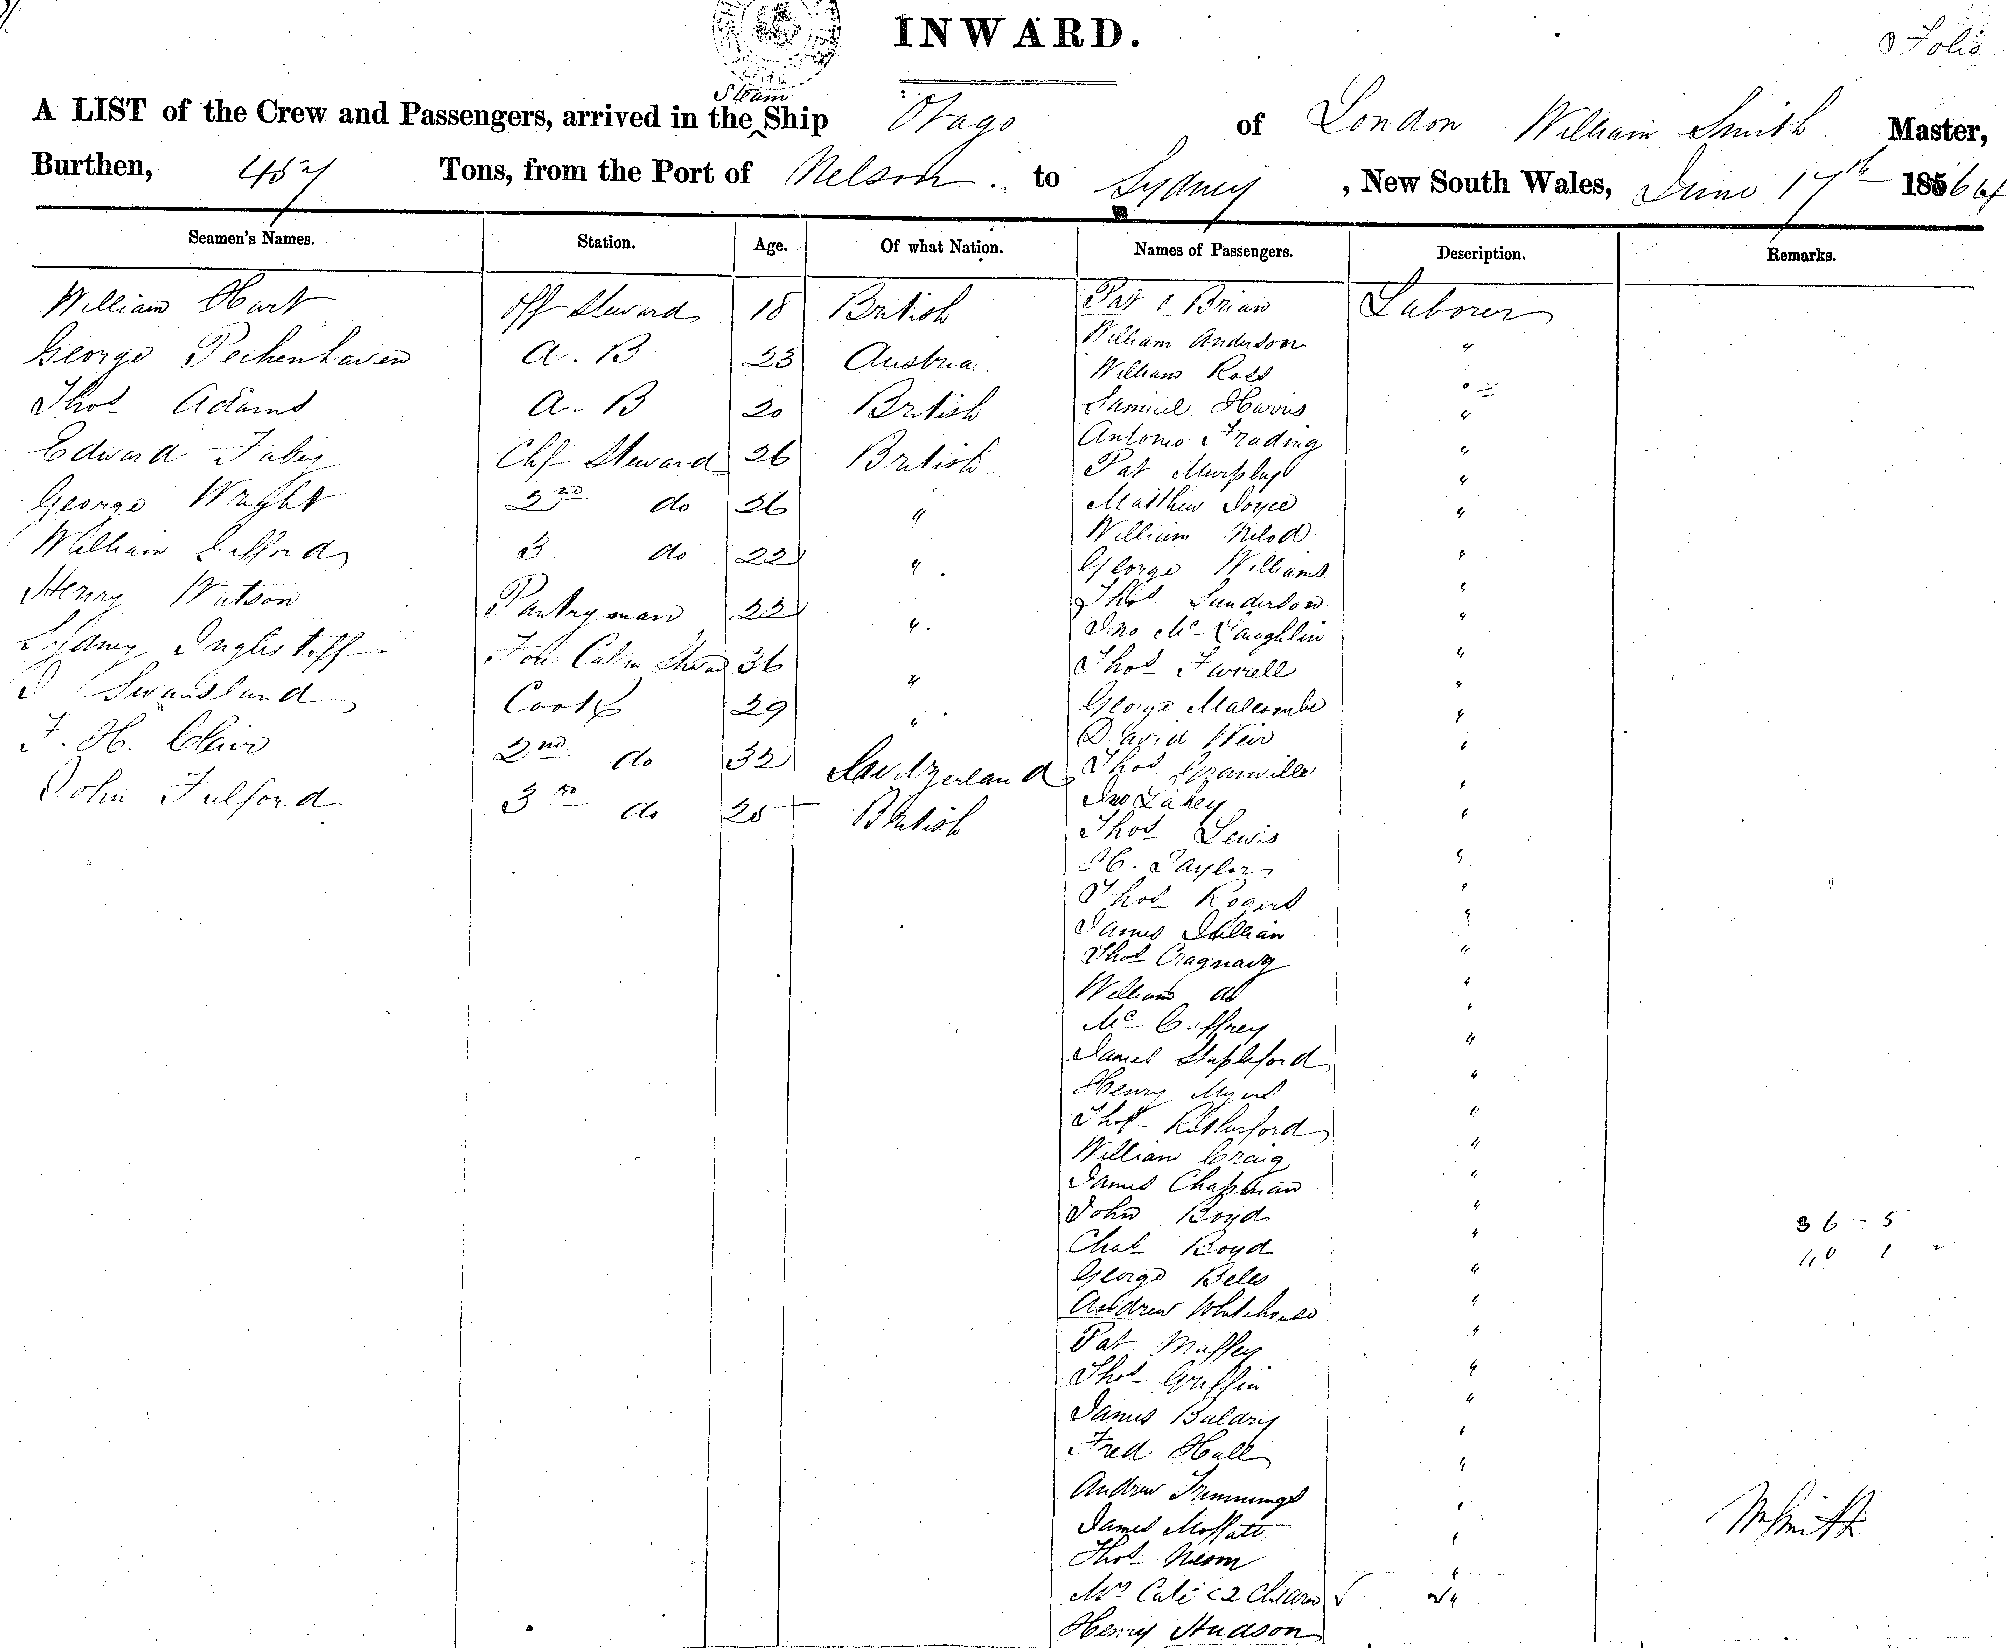 INWARD.
Folio
A LIST of the Crew and Passengers, arrived in the Steam Ship Otago of London William Smith Master,
Burthen, 457 Tons, from the Port of Nelson to Sydney, New South Wales, June 17th 1864
Seamen's Names. Station. Age. Of what Nation. Names of Passengers. Description. Remarks.
William Hart off Steward 18 British Pat O Brian Laborer
George A. B 23 Austria William Anderson "
Thos Adams A. B 20 British William Ross "
Samuel Harris "
Edward Chf Steward 26 British Antonio "
Pat Murphy "
George Wright 2nd do 26 " Matthew Joyce "
William 3 do 22 " William "
George Williams "
Henry Watson Pantryman 22 " Thos Sanderson "
Jno McLaughlin "
Sydney 36 " Thos Farrell "
Swansland Cook 29 " George Malcombe "
David Weir "
F. H. 2nd do 32 Thos Granville "
John Fulford 3rd do 25 British Jno Lahey "
Thos Lewis "
H. Taylor "
Thos Rogers "
James "
Thos "
William do "
Mc "
James Stapleford "
Henry Myers "
Thos Rutherford "
William Craig "
James Chapman "
John Boyd "
36 - 5
Chas Boyd "
40 1 "
George "
Andrew Whitehouse "
Pat "
Thos Griffin "
James Baldry "
Fred Hall "
Andrew "
James Moffatt "
WSmith
Thos "
Mrs 2
Henry Hudson